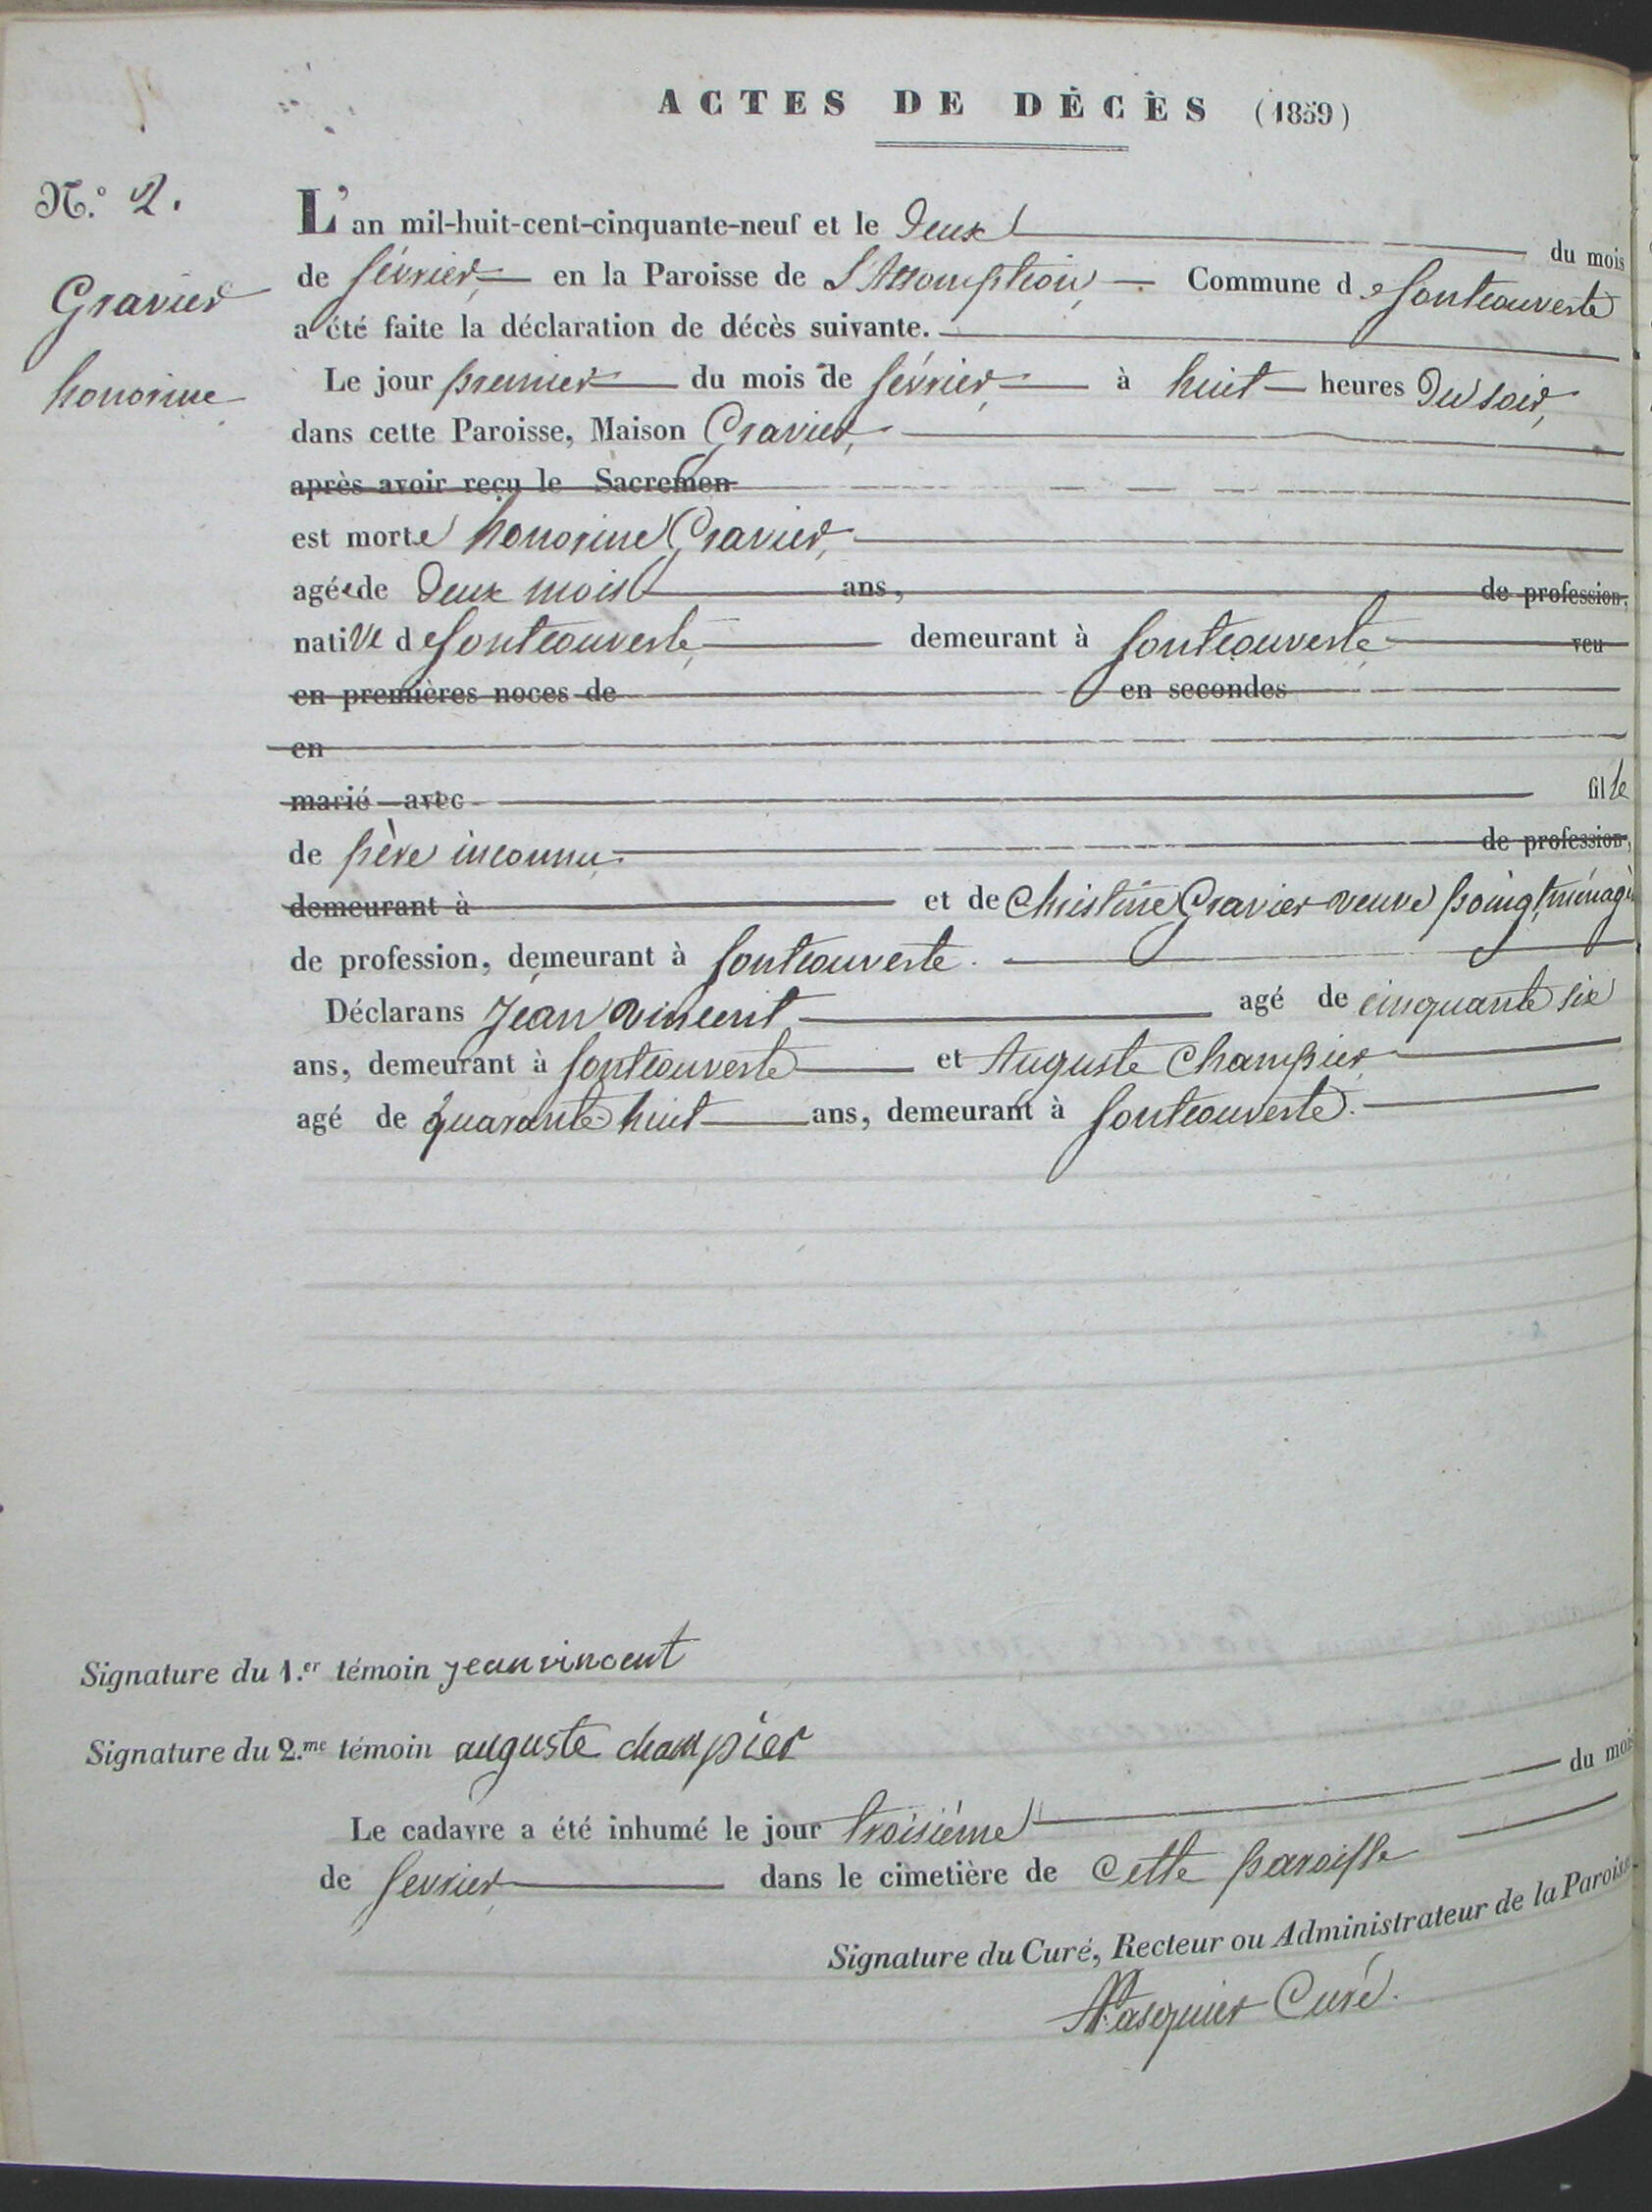 ACTES DE DÉCÈS (1859)
N.º 2.
Gravier
honorine
L'an mil-huit-cent-cinquante-neuf et le Deux du mois
de février, en la Paroisse de L'Assomption, Commune de fontcouverte
a été faite la déclaration de décès suivante.
Le jour premier du mois de février, à huit heures Du soir,
dans cette Paroisse, Maison Gravier,
après avoir reçu le Sacremen
est morte honorine Gravier,
agée de Deux mois ans, de profession,
native de fontcouverte, demeurant à fontcouverte, veu
en premières noces de en secondes
en
marié avec fille
de père inconnu, de profession,
demeurant à et de Christine Gravier veuve poingt, ménagè
de profession, demeurant à fontcouverte.
Déclarans Jean Vincent agé de cinquante six
ans, demeurant à fontcouverte et Auguste Champier
agé de quarante huit ans, demeurant à fontcouverte.
Signature du 1.er témoin jean vincent
Signature du 2.me témoin auguste champier
Le cadavre a été inhumé le jour troisiéme du mois
de fevrier, dans le cimetière de cette paroisse
Signature du Curé, Recteur ou Administrateur de la Paroisse
Pasquier Curé.